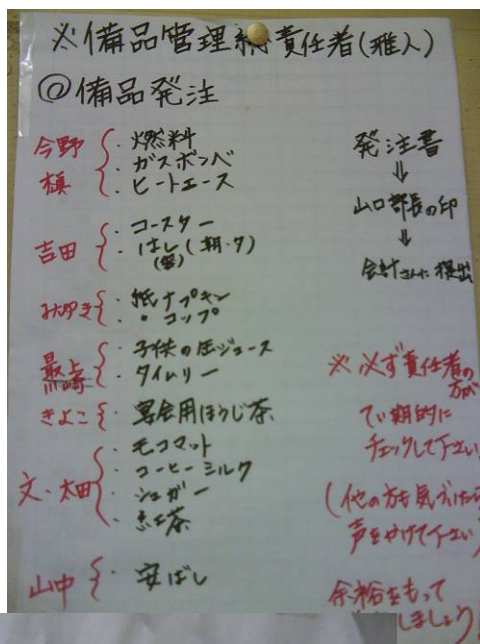 ※備品管理総責任者(雅人)
@備品発注
今野
槙
・燃料
・ガスボンベ
・ヒートエース
吉田
・コースター
・はし(朝・夕)
みゆき
・紙ナプキン
・〃コップ
最上
黒崎
・子供の缶ジュース
・タイムリー
きよこ
・宴会用ほうじ茶
文・太田
・モコマット
・コーヒーミルク
・シュガー
・紅茶
山中
・安ばし
発注書
⇓
山口部長の印
⇓
会計さんに提出
※必ず責任者の
方が
てい期的に
チェックして下さい
(他の方も気づいたら
声をかけて下さい)
余裕をもって
しましょう